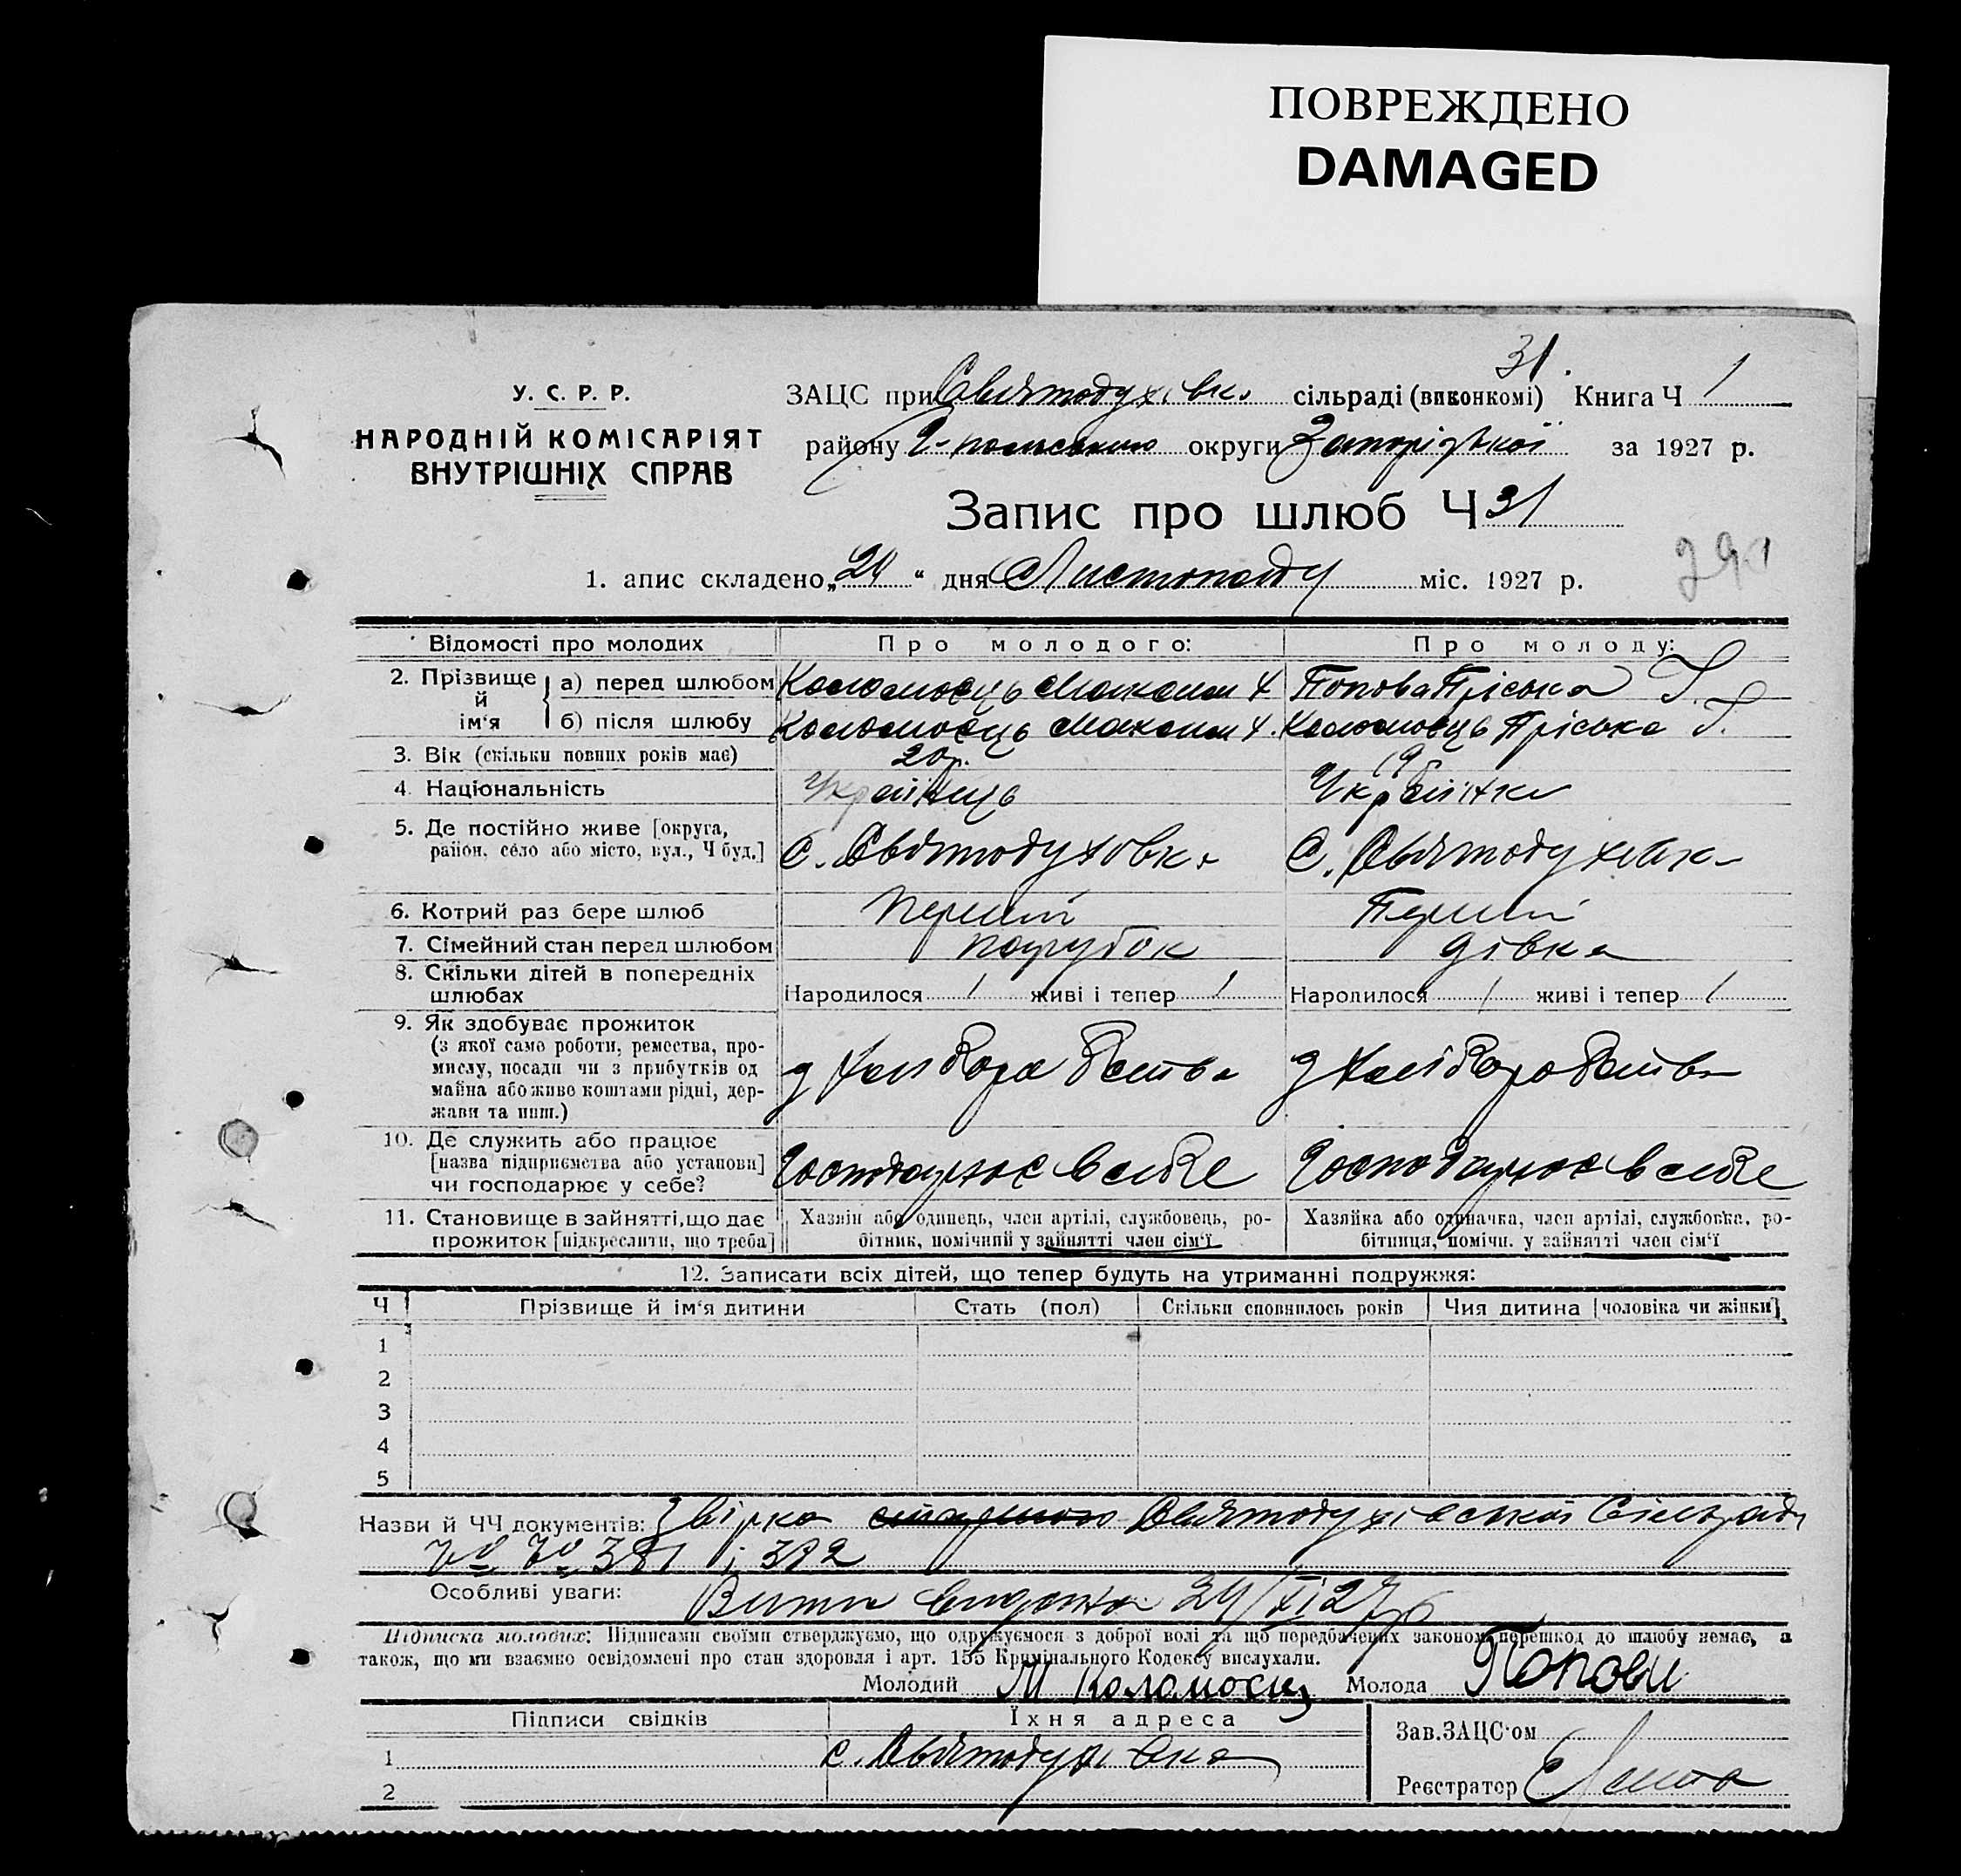 ПОВРЕЖДЕНО
DAMAGED
31.
У. С. Р. Р.
НАРОДНІЙ КОМІСАРІЯТ
ВНУТРІШНІХ СПРАВ
ЗАЦС при Святодухівк. сільраді (виконкомі) Книга Ч 1
району округи Запорізької за 1927 р.
Запис про шлюб Ч 31
1. апис складено „24“ дня Листопаду міс. 1927 р.
Відомості про молодих Про молодого: Про молоду:
2. Прізвище й ім‘я
а) перед шлюбом Коломоєць Максим Х Попова Пріська Г.
б) після шлюбу Коломоєць Максим Х. Коломоєць Пріська Г.
3. Вік (скільки повних років має) 20 р. 19
4. Національність Українець Українка
5. Де постійно живе [округа,
район, село або місто, вул., Ч буд.] с. Святодуховка с. Святодухівка
6. Котрий раз бере шлюб Перший Перший
7. Сімейний стан перед шлюбом парубок дівка
8. Скільки дітей в попередніх
шлюбах Народилося / живі і тепер / Народилося / живі і тепер /
9. Як здобуває прожиток
(з якої само роботи, ремества, про-
мислу, посади чи з прибутків од
майна або живе коштами рідні, дер-
жави та инш.) з хліборобства з хліборобства
10. Де служить або працює
[назва підприємства або установи]
чи господарює у себе? Господарює в себе Господарює в себе
11. Становище в зайнятті, що дає
прожиток [підкреслити, що треба]
Хазяїн або одинець, член артілі, службовець, ро-
бітник, помічний у зайнятті член сім‘ї
Хазяйка або одиначка, член артілі, службовка, ро-
бітниця, помічн. у зайнятті член сім‘ї
12. Записати всіх дітей, що тепер будуть на утриманні подружжя:
Ч Прізвище й ім‘я дитини Стать (пол) Скільки сповнилось років Чия дитина [чоловіка чи жінки]
1
2
3
4
5
Назви й ЧЧ документів: Звірка Святодухівської Сільради
№ № 381 і 382
Особливі уваги: 24/XI 27 р
Підписка молодих: Підписами своїми стверджуємо, що одружуємося з доброї волі та що передбачених законом перешкод до шлюбу немає, а
також, що ми взаємно освідомлені про стан здоровля і арт. 155 Кримінального Кодексу вислухали.
Молодий М Коломоєц Молода Попови
Підписи свідків Їхня адреса
1 с. Святодухівка
2
Зав.ЗАЦС‘ом
Реєстратор